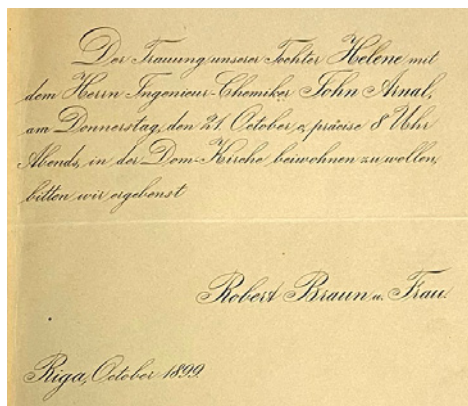 Der Trauung unserer Tochter Helene mit
dem Herrn Ingenieur-Chemiker John Arnal,
am Donnerstag, den 21. October c, präcise 8 Uhr
Abends, in der Dom-Kirche beiwohnen zu wollen,
bitten wir ergebenst
Robert Braun u. Frau.
Riga, October 1899.